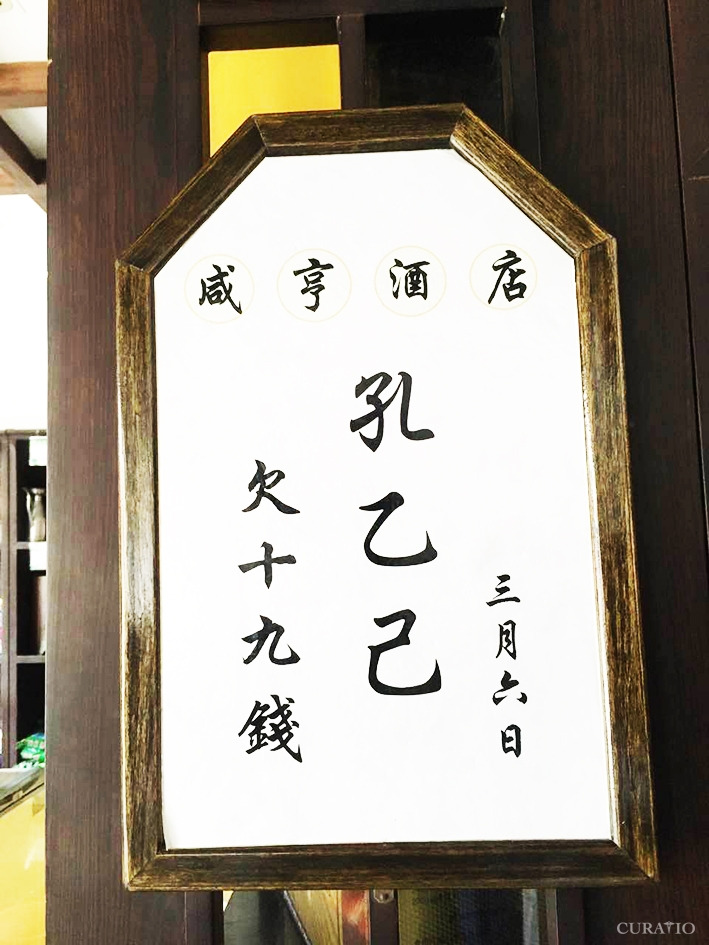 咸亨酒店
三月六日
孔乙己
欠十九錢
CURATIO